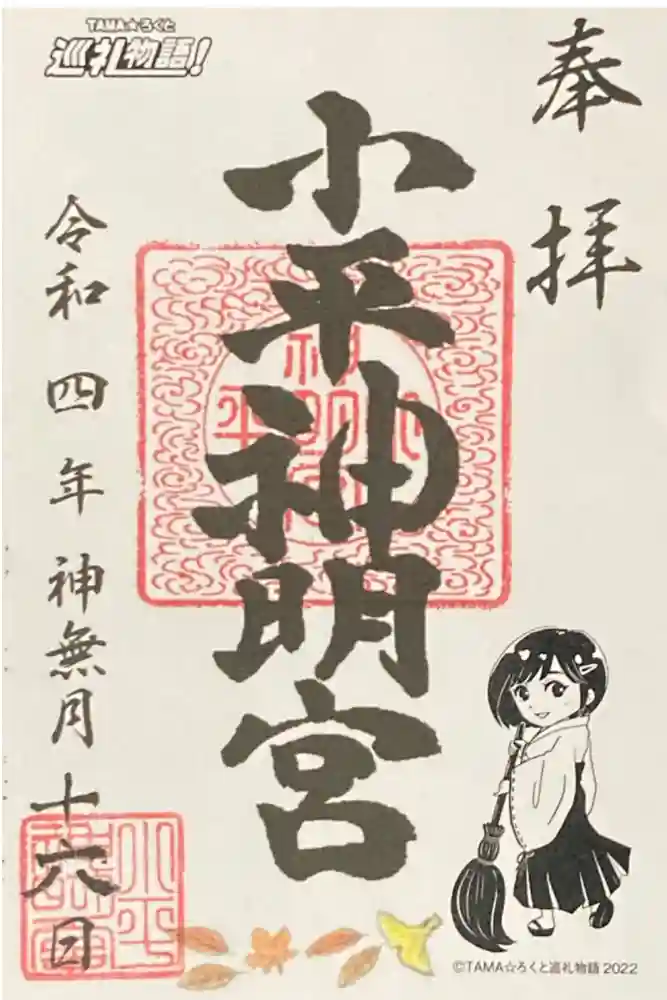 TAMA☆ろくと
巡礼物語!
奉拝
小平神明宮
令和四年神無月十六日
©TAMA☆ろくと巡礼物語 2022